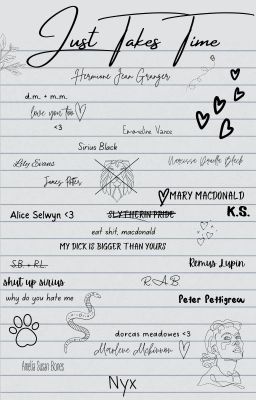 Just Takes Time
Hermione Jean Granger
d.m. + m.m.
love you too
<3
Emmeline Vance
Sirius Black
Lily Evans
Narcissa Drusilla Black
James Potter
MARY MACDONALD
Alice Selwyn <3
SLYTHERIN PRIDE
K.S.
eat shit, macdonald
MY DICK IS BIGGER THAN YOURS
S.B. + R.L.
Remus Lupin
shut up sirius
R.A.B
why do you hate me
Peter Pettigrew
dorcas meadowes <3
Marlene Mckinnon
Amelia Susan Bones
Nyx